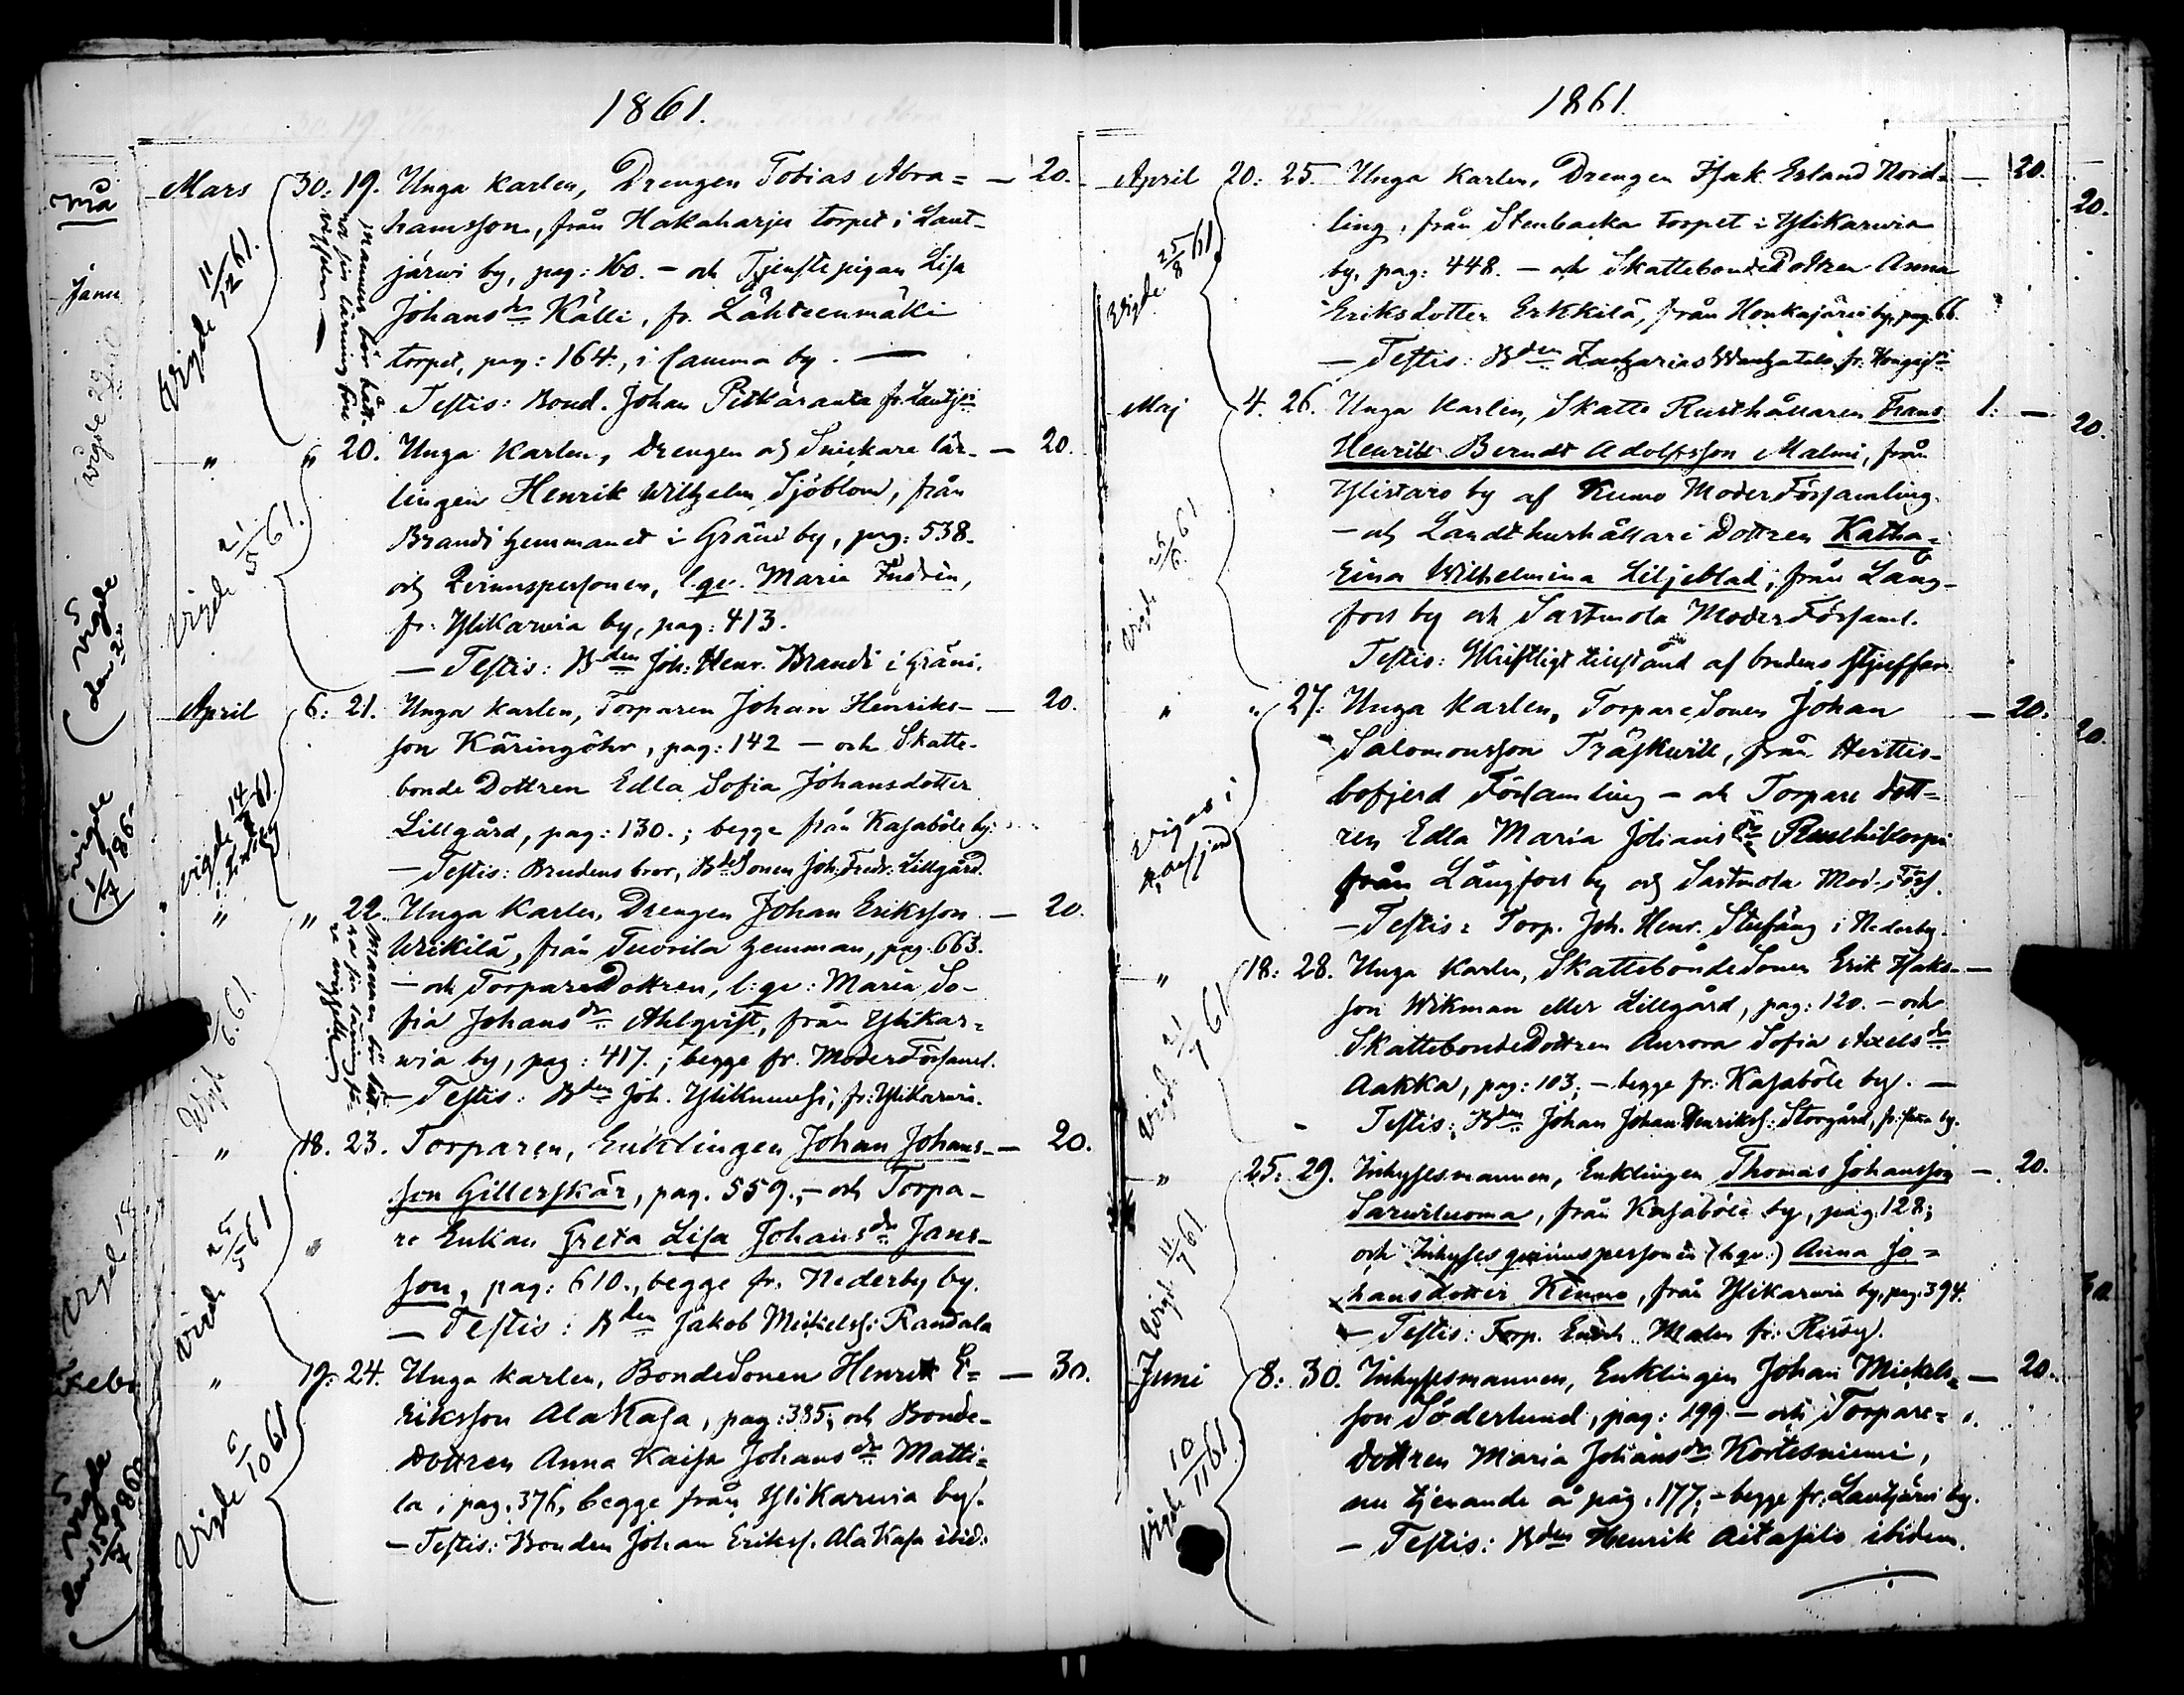 1861.
Mars 30. 19. Unga karlen, Drengen Tobias Abra= — 20.
hamsson, från Hakaharju torpet i Laut-
järwi by, pag: 160. – och Tjenstepigan Lisa
Johansdr Källi, fr. Lähteenmäki
torpet, pag: 164., i samma by. —
Testis: Bond. Johan Pitkäranta fr. Lautjrwi
Vigde 11/12 61.
Mannen bör bätt-
ra sin läsning före
vigseln —
" " 20. Unga Karlen, drengen och Snickare lär- — 20.
lingen Henrik Wilhelm Sjöblom, från
Brandt hemmanet i Gräni by, pag: 538.
och Qvinnspersonen, l. qv. Maria
fr. Ylikarwia by, pag: 413.
— Testis: Bden Joh: Henr. Brandt i Gräni.
Vigde 21/5 61.
April 6: 21. Unga karlen, Torparen Johan Henriks- — 20.
son Käringöhr, pag: 142 – och Skatte-
bonde Dottren Edla Sofia Johansdotter
Lillgård, pag: 130.; begge från Kasaböle by.
— Testis: Brudens bror, BdeSonen Joh: Fredr: Lillgård.
vigde 14/ 61.
" " 22. Unga Karlen, Drengen Johan Eriksson — 20.
Wrikilä, från Tuorila hemman, pag. 663.
– och TorpareDottren, l: qv: Maria So-
fia Johansdr Ahlqvist, från Ylikar=
wia by, pag: 417.; begge fr. ModerFörsaml.
— Testis: Bden Joh. Yliknuussi, fr: Ylikarwia.
Vigde /6. 61.
Mannen bör bätt-
ra sin läsning fö-
re vigseln
" 18. 23. Torparen, Enklingen Johan Johans- — 20.
son Gillerskär, pag. 559., – och Torpa-
re Enkan Greta Lisa Johansdr Jans-
son, pag: 610., begge fr. Nederby by.
— Testis: Bden Jakob Mickelss: Randala
Vigde 25/5 61
" 19: 24. Unga karlen, BondeSonen Henrik E= — 30.
riksson AlaKasa, pag: 385; och Bonde-
dottren Anna Kaisa Johansdr Matti=
la i pag. 376, begge från YliKarwia by.
— Testis: Bonden Johan Erikss. AlaKasa ibid:
Vigde 6/10 61
1861.
April 20: 25. Unga Karlen, Drengen Isak Erland Nord= — 20.
ling, från Stenbacka torpet i Ylikarwia
by, pag: 448. – och SkattebondeDottren Anna
Eriksdotter Erkkilä, från Honkajärwi by, pag. 66.
— Testis: Bden Zacharias
Vigde 25/8 61
Maj 4. 26. Unga Karlen, Skatte Rusthållaren Frans 1: —
Henrik Berndt Adolfsson Malmi, från
Ylistaro by af Kumo ModerFörsamling.
– och Landthushållare Dottren Katha=
rina Wilhelmina Liljeblad, från Lång-
fors by och Sastmola ModerFörsaml.
Testis: Skriftligt tillstånd af brudens
Vigde 26/6. 61
" " 27. Unga Karlen, TorpareSonen Johan — 20.
Salomonsson Träskwik, från Herttis-
bofjerd Församling – och Torpare dott=
ren Edla Maria Johansdr
från Långfors by och Sastmola Mod. Förs.
— Testis: Torp. Joh. Henr. Stufäng i Nederby.
Vigas i
18: 28. Unga Karlen, SkattebondeSonen Erik Isaks- —
son Wikman eller Lillgård, pag: 120. – och
SkattebondeDottren Aurora Sofia Axelsdr
Aakka, pag: 103; – begge fr: Kasaböle by. —
Testis: Bden Johan Johan Henrikss: Storgård, fr: samma by.
Vigde 21/7 61
" 25: 29. Inhysesmannen, Enklingen Thomas Johansson — 20.
Sarwiluoma, från Kasaböle by, pag. 128;
och Inhyses qvinnspersonen (l. qv.) Anna Jo=
hansdotter Kumo, från Ylikarwia by, pag. 394.
— Testis: Torp. Malm fr: Riisby.
Vigde 11/7 61
Juni 8: 30. Inhysesmannen, Enklingen Johan Mickels= — 20.
son Söderlund, pag: 199 – och Torpare=
dottren Maria Johansdr Kortesniemi,
nu tjenande å pag. 177; – begge fr. Lautjärwi by.
— Testis: Bden Henrik Aitasalo ibidem.
Vigde 10/11 61